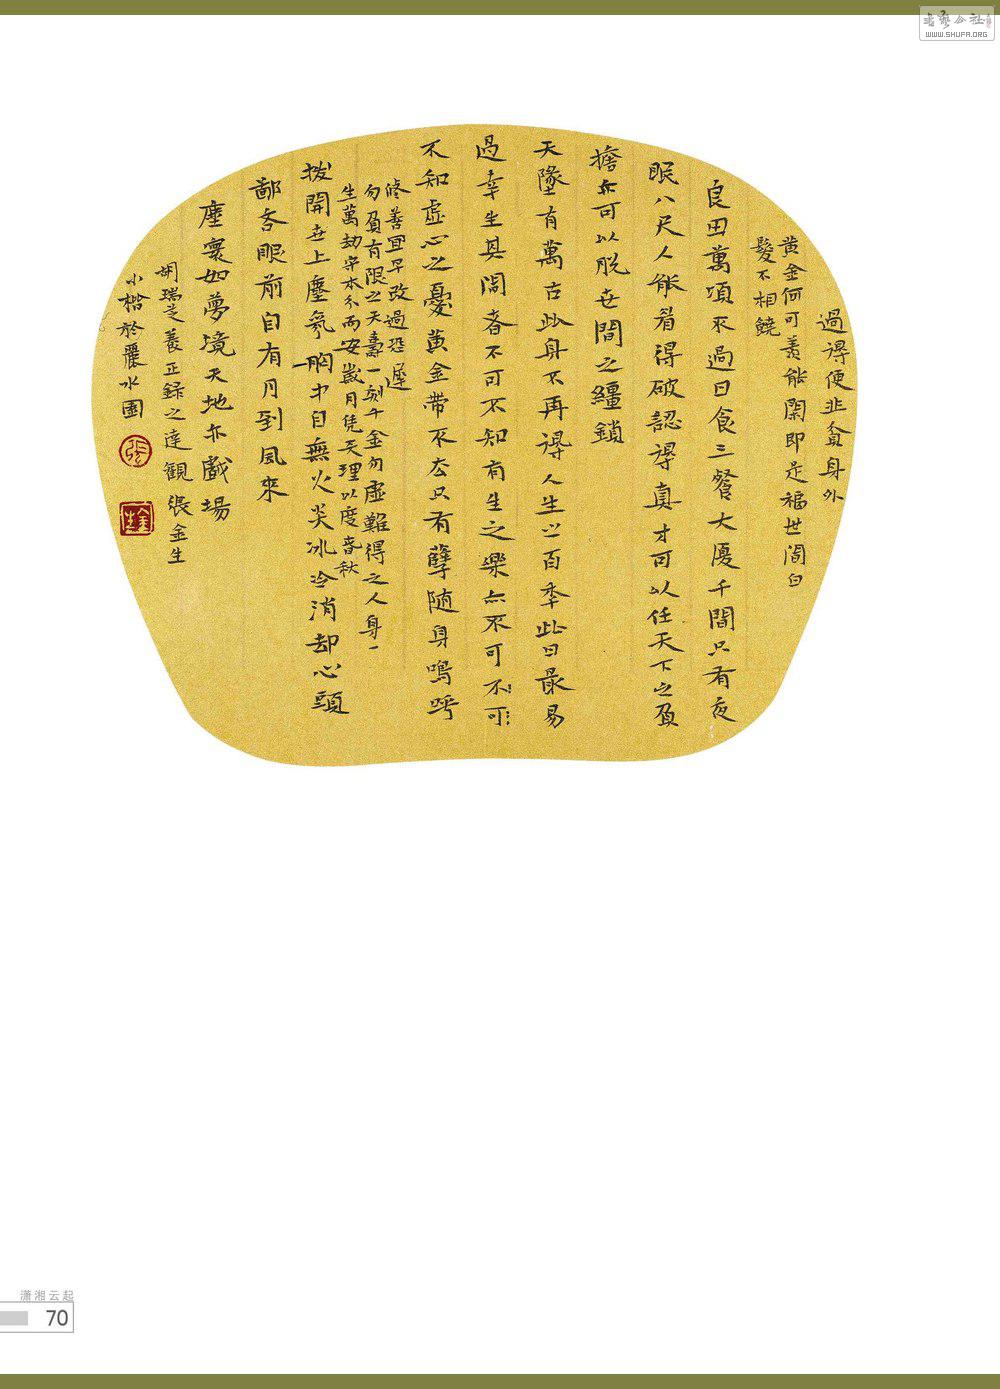 過得便非貧身外
黃金何可羨能閑即足福世間白
髮不相饒
良田萬頃不過日食三餐大廈千間只有夜
眠八尺人能看得破認得真才可以任天下之負
擔亦可以脫世間之韁鎖
天墜有萬古此身不再得人生止百年此日最易
過幸生其間者不可不知有生之樂亦不可不可
不知虛心之憂黃金帶不去只有孽隨身鳴呼
修善宜早改過恐遲
勿負有限之天壽一刻千金勿虛難得之人身一
生萬劫守本分而安歲月凭天理以度春秋
撥開世上塵氛胸中自無火炎冰冷消却心頭
鄙吝眼前自有月到風來
塵寰如夢境天地亦戲場
胡瑞芝養正録之達觀張金生
小楷於麗水園
张
金生
書藝公社
WWW.SHUFA.ORG
潇湘云起
70